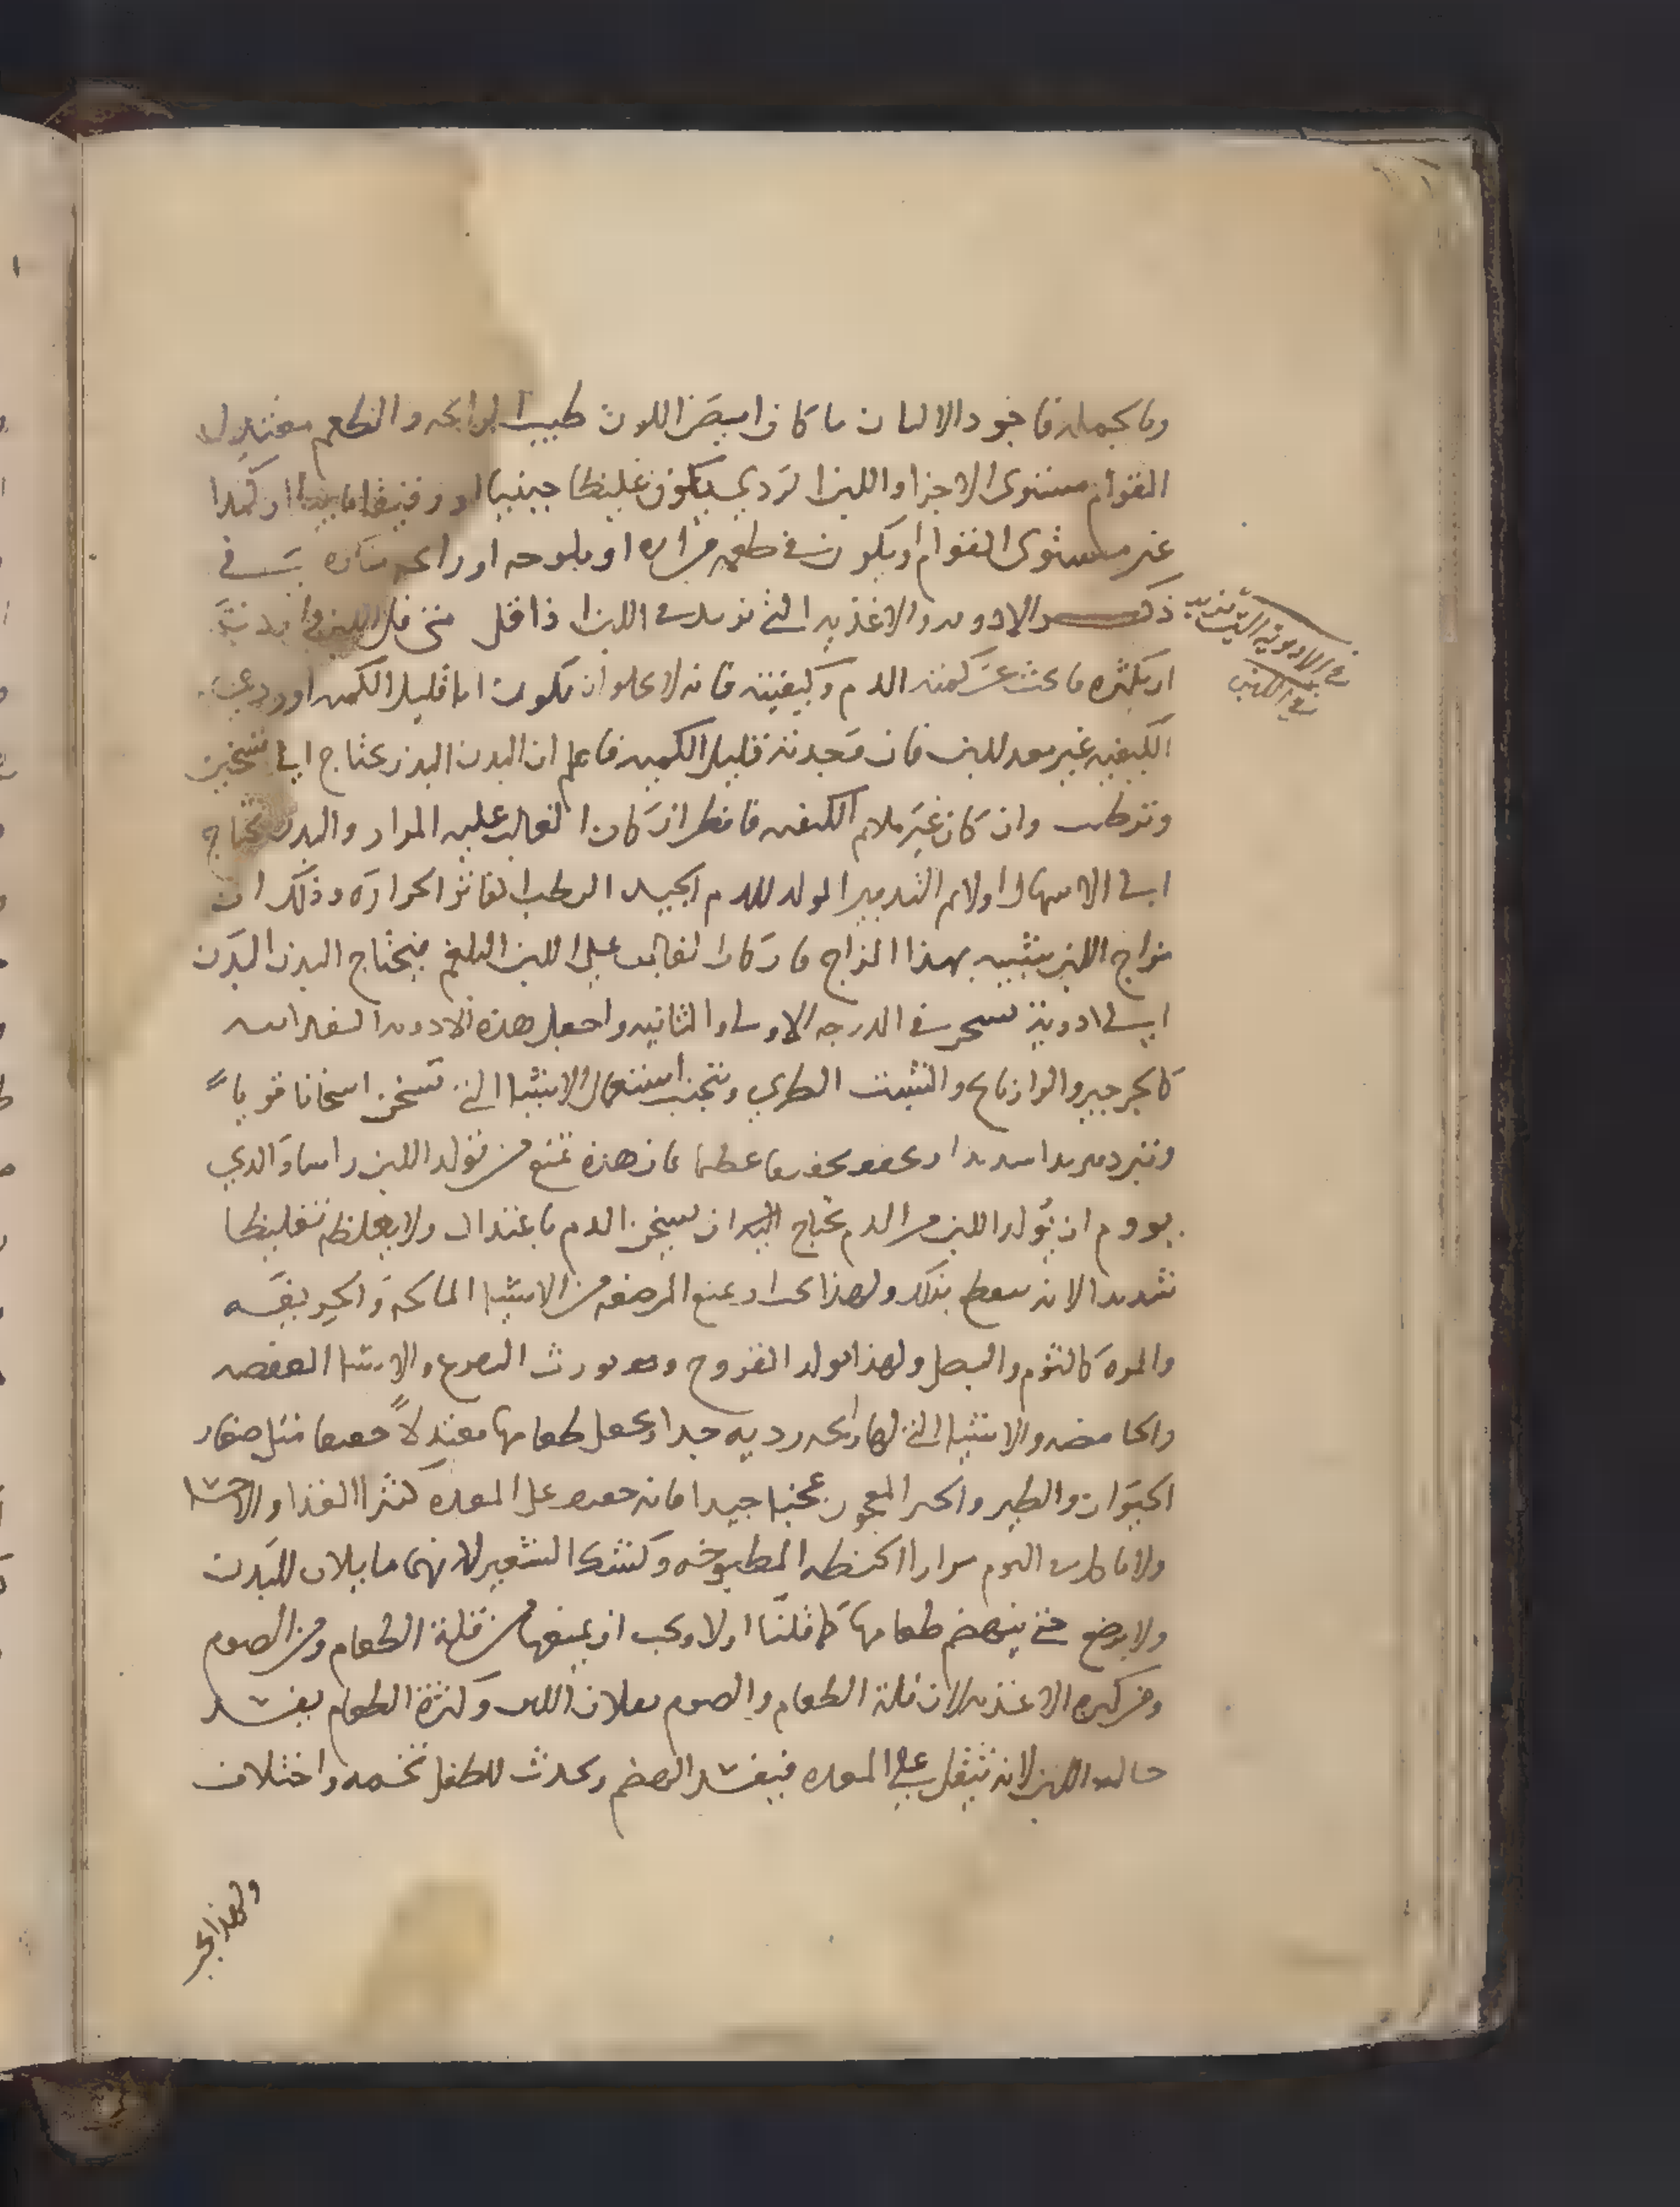 وبالجمله فاجود الالبان ما كان ابيض اللون طيب الرايحه والطعم معتدل
القوام مستوى الاجزا واللبن الردي يكون غليظا جبنيا او رقيقا ماييا او كمدا
غير مستوى القوام او يكون في طعمه مراره او ملوحه او رايحه منكره في
ذكر الادويه والاغذيه التي تزيد في اللبن اذا قل متى قل اللبن في
او يكثره فابحث عن كمية الدم وكيفيته فانه لا يخلو ان يكون اما قليل الكميه او ردي
الكيفيه غير معد للبن فان وجدته قليل الكميه فاعلم ان البدن يحتاج الي تسخين
وترطيب وان كان غير ملايم الكيفيه فانظر ان كان الغالب عليه المرار والبدن يحتاج
الي الاسهال اولا ثم التدبير المولد للدم الجيد الرطب الفاتر الحراره وذلك ان
مزاج اللبن شبيه بهذا المزاج فان كان الغالب على اللبن البلغم فيحتاج البدن
الي ادوية تسخن في الدرجه الاولى والثانيه واجعل هذه الادويه
كالجرجير والرازيانج والشبت الطري وتجنب استعمال الاشيا التي تسخن اسخانا قويا
وتبرد تبريدا شديدا او تجفف تجفيفا عظيما فان هذه تمنع من تولد اللبن راسا والذي
يروم ان يولد اللبن من الدم يحتاج الي ان يسخن الدم باعتدال ولا يغلظه تغليظا
شديدا لانه ينقطع بذلك ولهذا يجب ان تمنع المرضعه من الاشيا المالحه والحريفه
والمره كالثوم والبصل ولهذا يولد القروح وهو يورث الصرع والاشيا العفصه
والحامضه والاشيا التي لها رايحه رديه جدا ويجعل طعامها معتدلا خفيفا مثل صغار
الحيوان والطير والخبز المعجون عجنا جيدا فانه خفيف على المعده كثير الغذا والاحشا
ولا باس اليوم مرارا الحنطه المطبوخه وكشك الشعير لانهما مايلان للبدن
ولا يرضع حتى ينهضم طعامها كما قلنا اولا ويجب ان يمنعها من قلة الطعام ومن الصوم
ومن كثره الاغذيه لان قلة الطعام والصوم يقلان اللبن وكثرة الطعام يفسد
حاله اللبن لانه يثقل على المعده فيفسد الهضم ويحدث للطفل تخمه واختلاف
في الادوية التي تزيد
في اللبن
ولهذا يجب